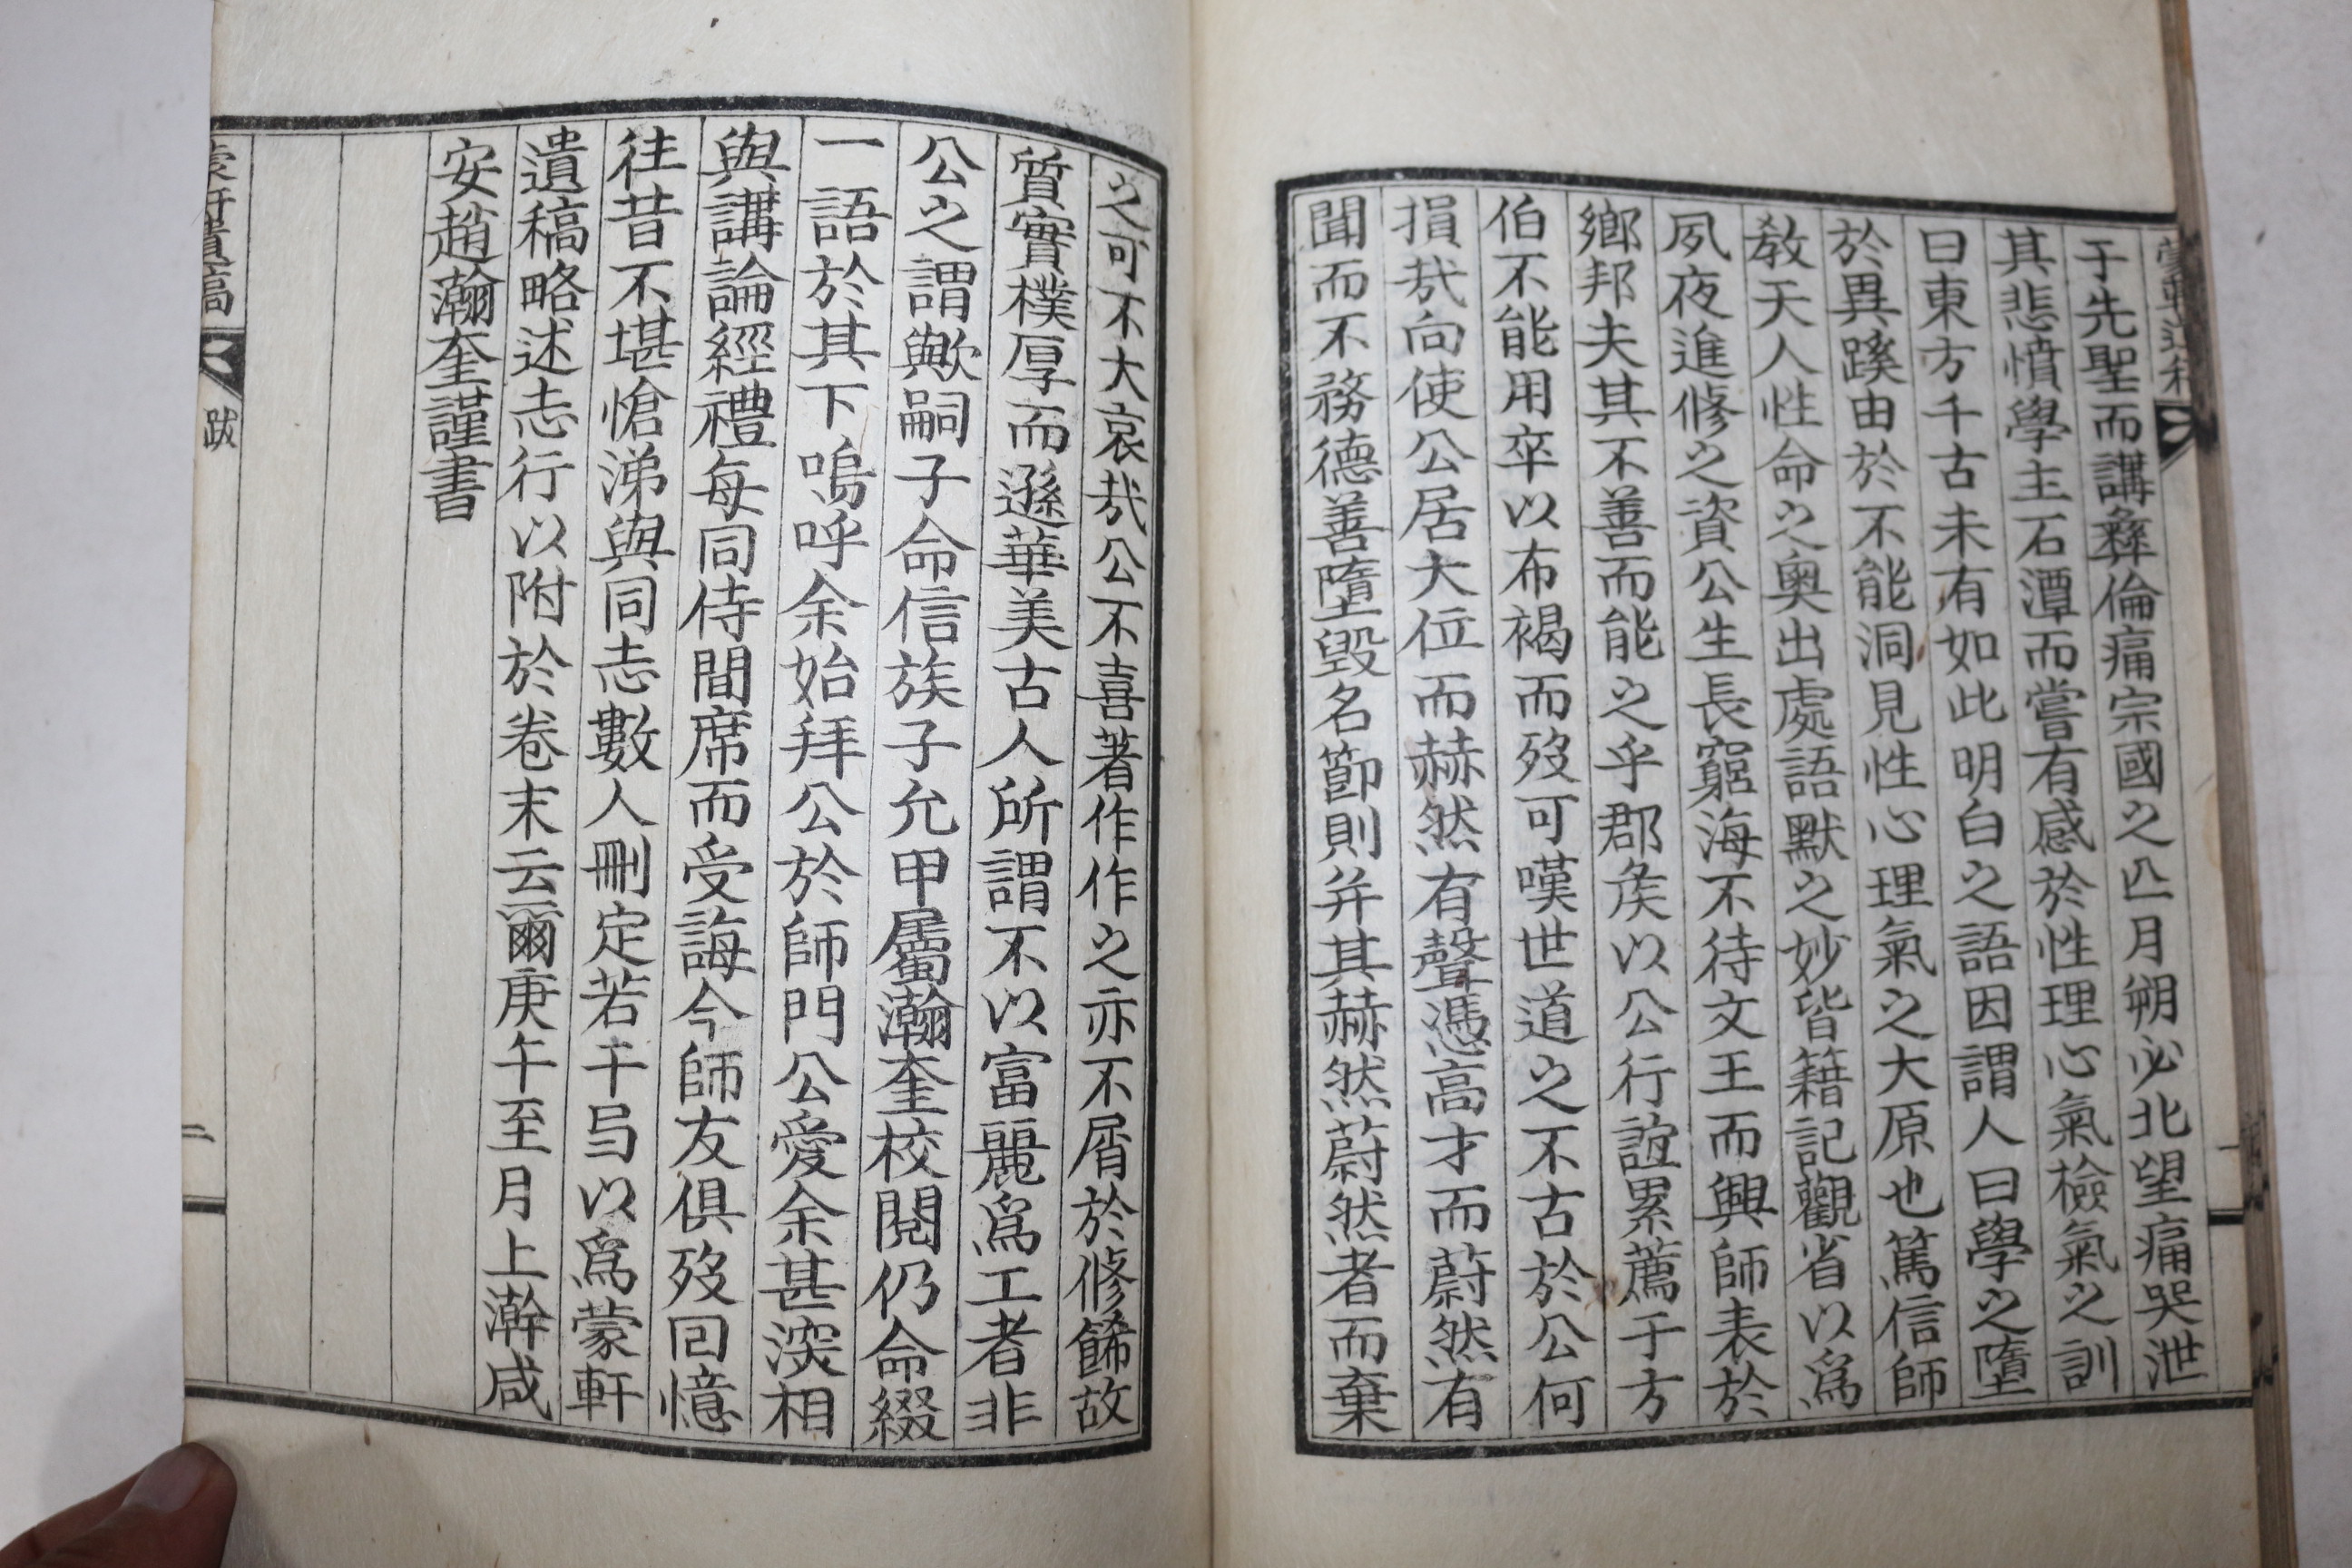 蒙軒遺稿
于先聖而講彝倫痛宗國之亡月朔必北望痛哭泄
其悲憤學主石潭而嘗有感於性理心氣檢氣之訓
曰東方千古未有如此明白之語因謂人曰學之墮
於異蹊由於不能洞見性心理氣之大原也篤信師
教天人性命之奧出處語默之妙皆籍記觀省以爲
夙夜進修之資公生長窮海不待文王而興師表於
鄉邦夫其不善而能之乎郡矦以公行誼累薦于方
伯不能用卒以布褐而歿可嘆世道之不古於公何
損哉向使公居大位而赫然有聲憑高才而蔚然有
聞而不務德善墮毀名節則并其赫然蔚然者而棄
之可不大哀哉公不喜著作作之亦不屑於修餙故
質實樸厚而遜華美古人所謂不以富麗爲工者非
公之謂歟嗣子命信族子允甲屬瀚奎校閱仍命綴
一語於其下嗚呼余始拜公於師門公愛余甚深相
與講論經禮每同侍間席而受誨今師友俱歿回憶
往昔不堪愴涕與同志數人刪定若干弓以爲蒙軒
遺稿略述志行以附於卷末云爾庚午至月上澣咸
安趙瀚奎謹書
蒙軒遺稿
跋
二